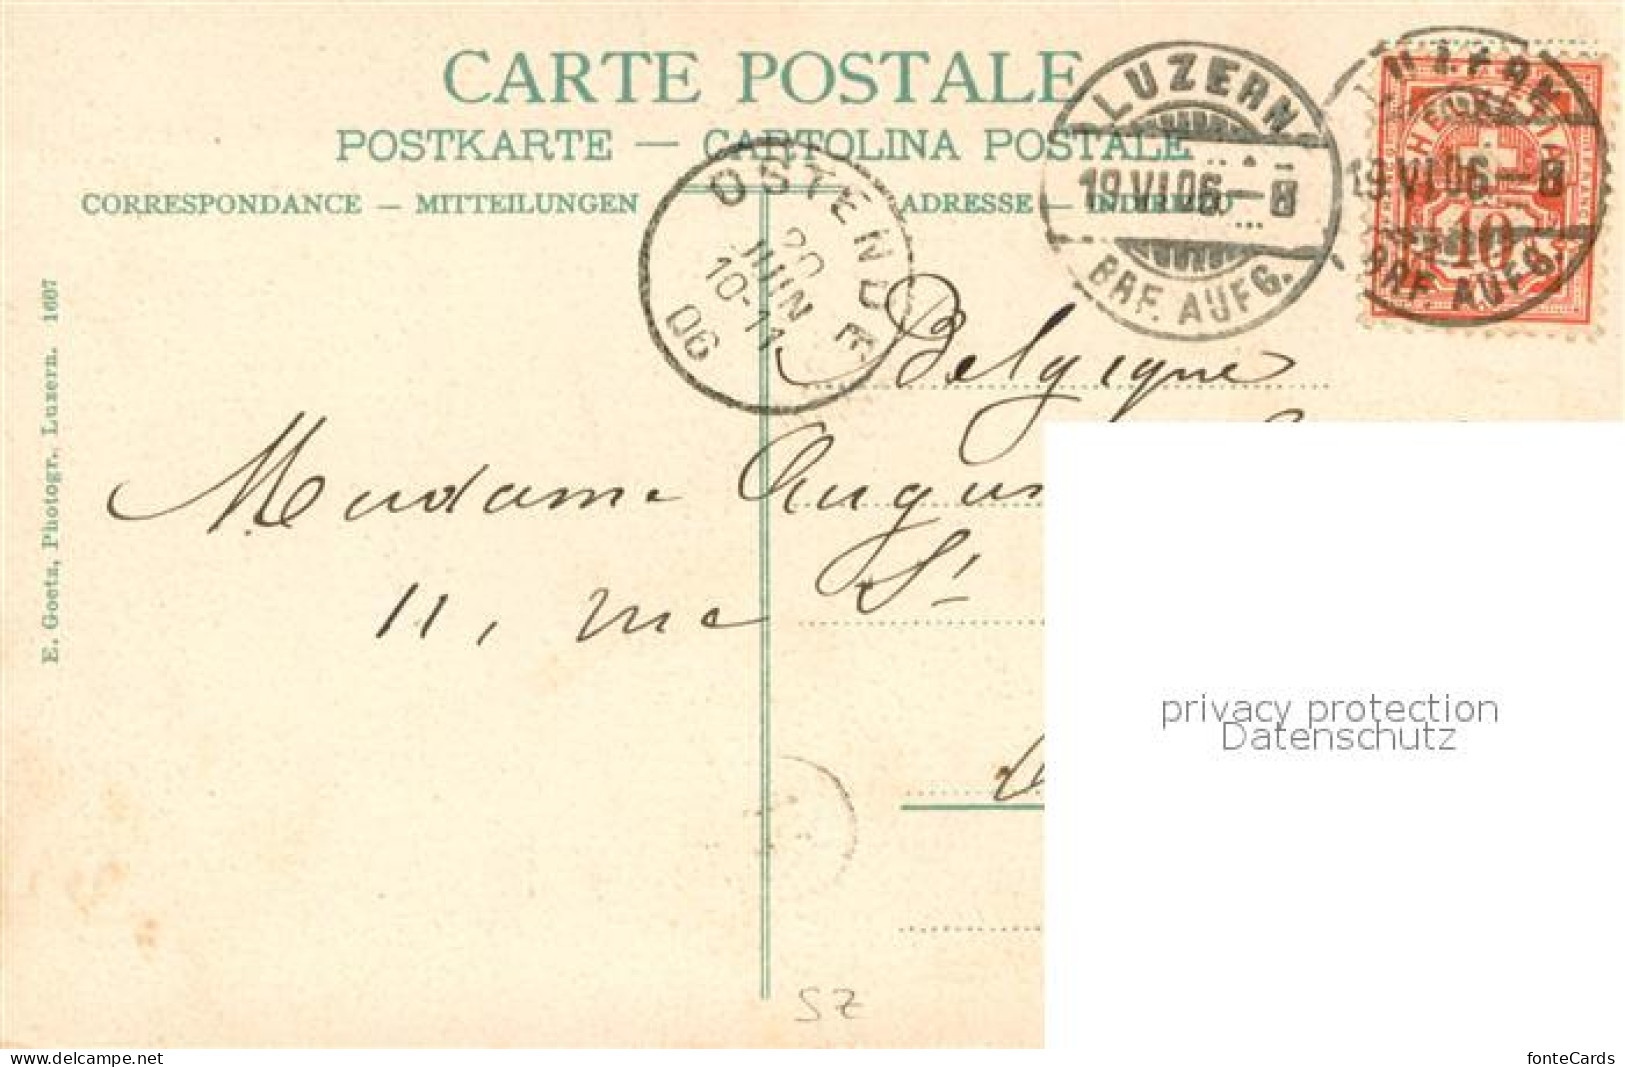 CARTE POSTALE
POSTKARTE — CARTOLINA POSTALE
CORRESPONDANCE — MITTEILUNGEN
ADRESSE — INDIRIZZO
LUZERN
19.VI.06.—8
BRF. AUFG.
LUZERN
19.VI.06—8
BRF. AUFG.
HELVETIA
10
OSTENDE
20
JUIN
10-11
06
E. Goetz, Photogr., Luzern. 1607
Belgique
Madame
11, rue St
privacy protection
Datenschutz
SZ
www.delcampe.net
fonteCards